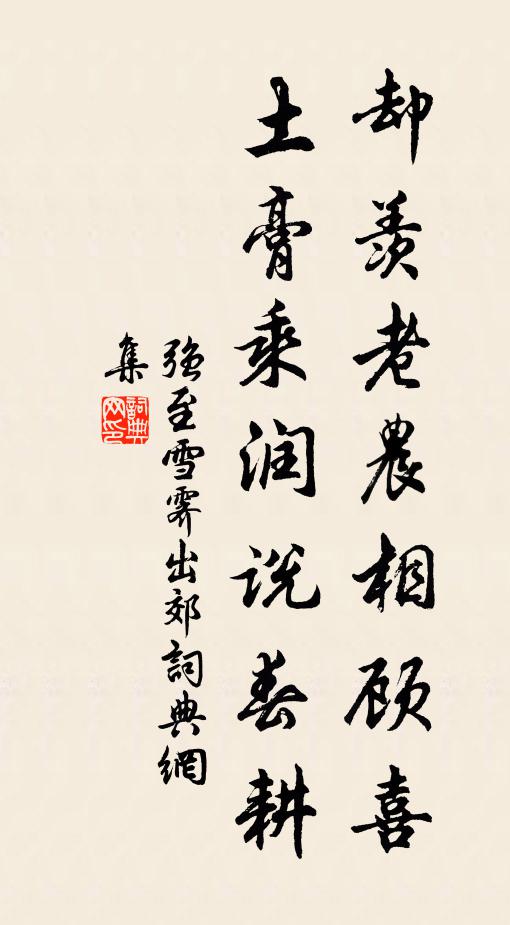 却羡老農相顾喜
土膏乘润说春耕
强至雪霁出郊詞典網
集
詞典網印